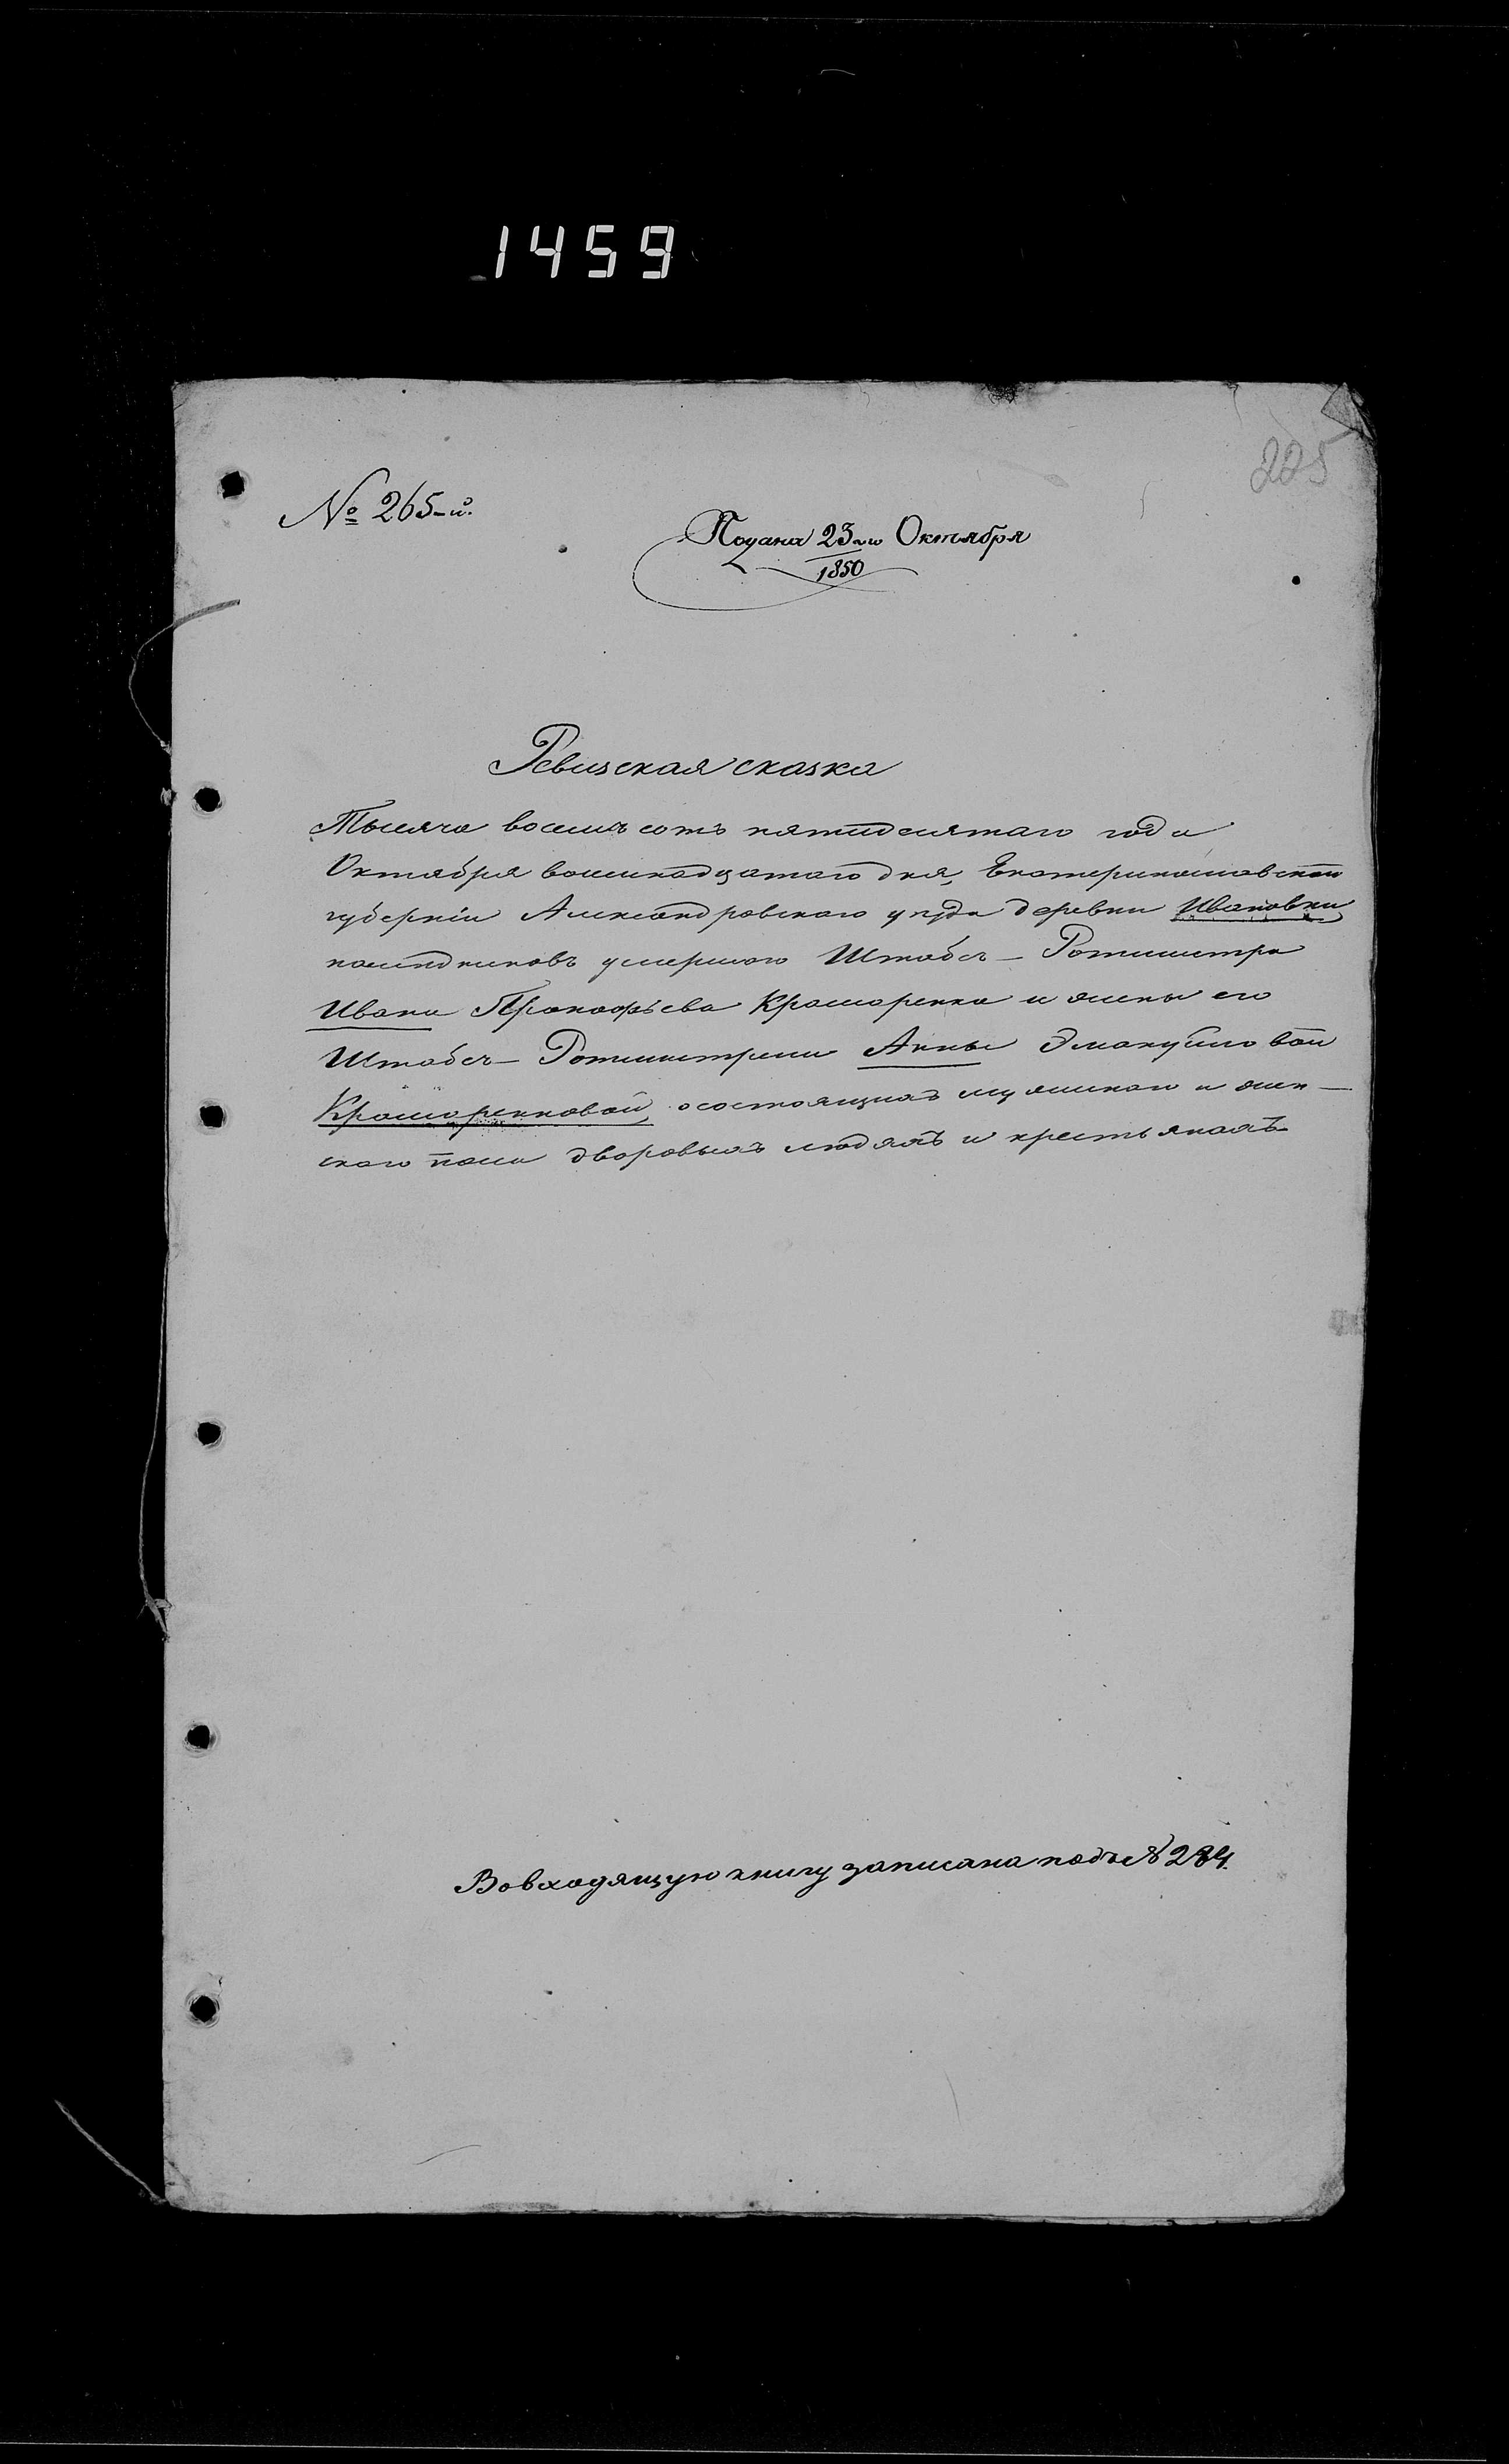 1459
225
№ 265-й.
Подана 23-го Октября
1850
Ревизская сказка
Тысяча восемь сотъ пятидесятаго года
Октября восемнадцатаго дня, Екатеринославской
губерніи Александровскаго уѣзда деревни Ивановки
помѣщиковъ умершаго Штабсъ-Ротмистра
Ивана Прокофьева Краморенка и жены его
Штабсъ-Ротмистрши Анны Эмануиловой
Краморенковой, о состоящихъ мужскаго и жен-
скаго пола дворовыхъ людяхъ и крестьянахъ
Во входящую книгу записана подъ № 284.